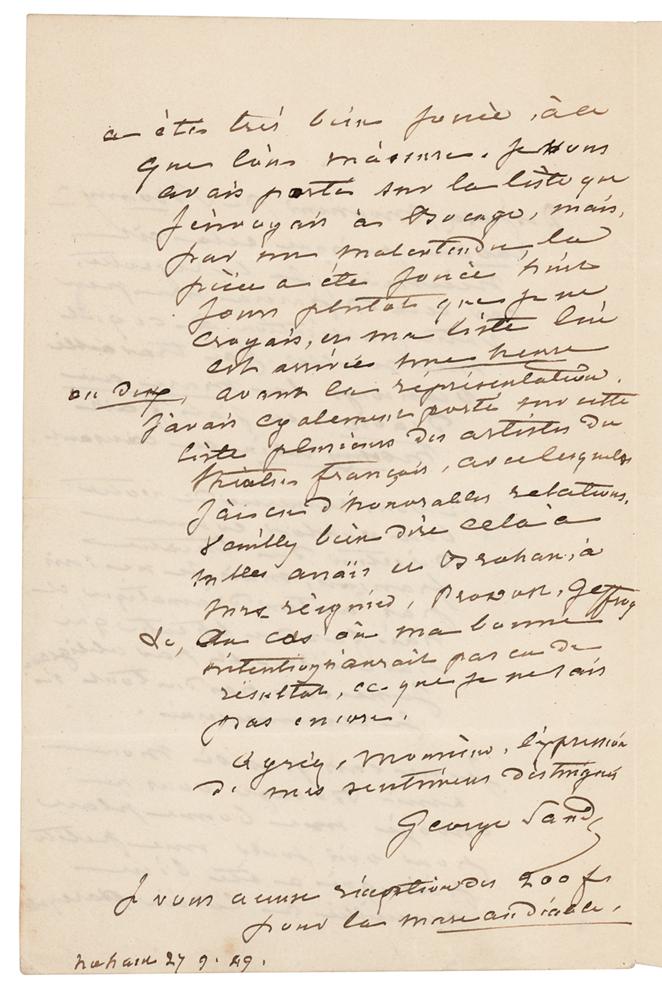 a été très bien jouée, à ce
que l'on m'assure. Je vous
avais porté sur la liste que
j'envoyais à Bocage, mais,
par un malentendu, la
pièce a été jouée huit
jours plutôt que je ne
croyais, et ma liste lui
est arrivée une heure
ou deux, avant la réprésentation.
J'avais également porté sur cette
liste plusieurs des artistes du
théatre français, avec lesquels
j'ai eu d'honorables relations.
Veuillez bien dire cela à
Mlles anaïs et Brohan, à
Mrs régnier, Provost, Geffroy
&c, au cas où ma bonne
intention n'aurait pas eu de
résultat, ce que je ne sais
pas encore.
Agréez, Monsieur, l'expression
de mes sentimens distingués
George Sand
Je vous accuse réception des 200 f
pour la mare au diable.
nohant 27 9. 49.